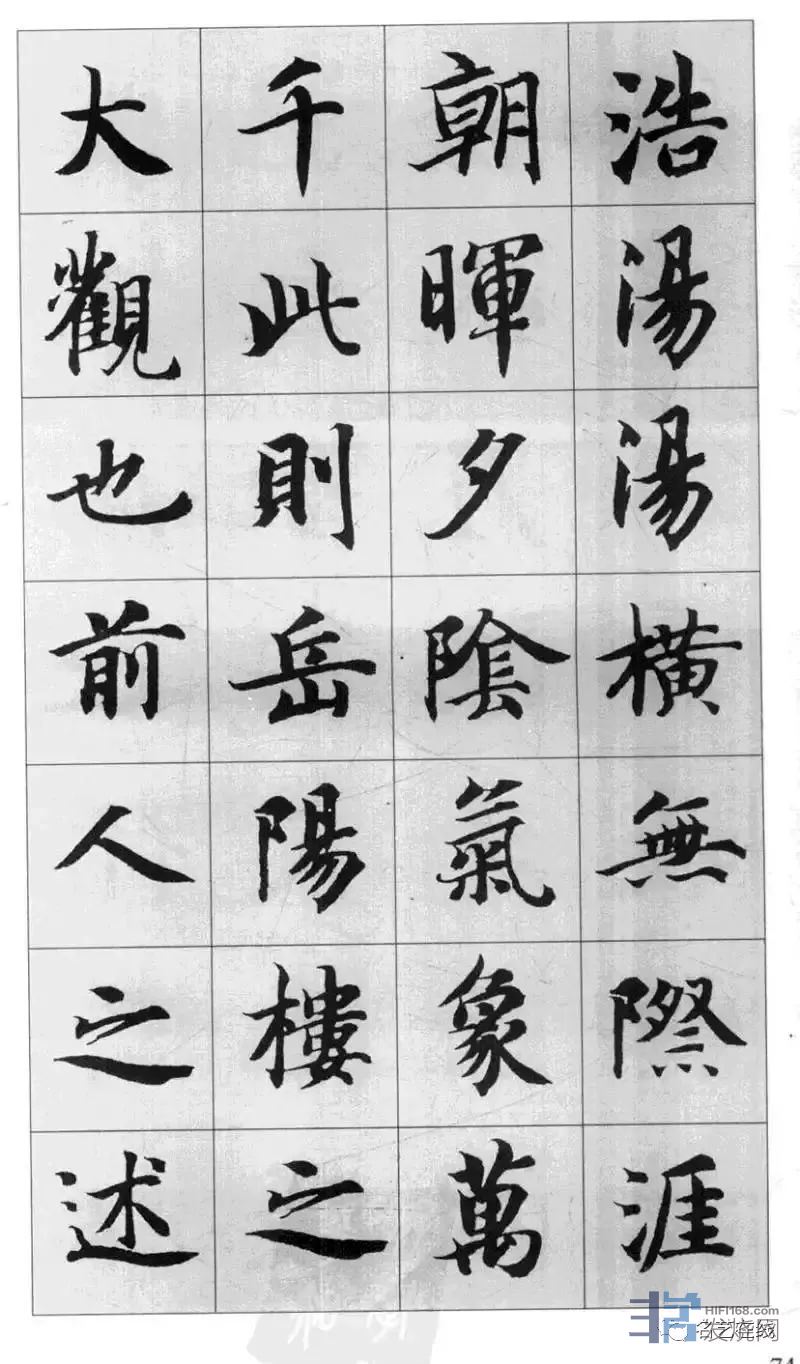 浩湯湯橫無際涯
朝暉夕陰氣象萬
千此則岳陽樓之
大觀也前人之述
HIFI168.com